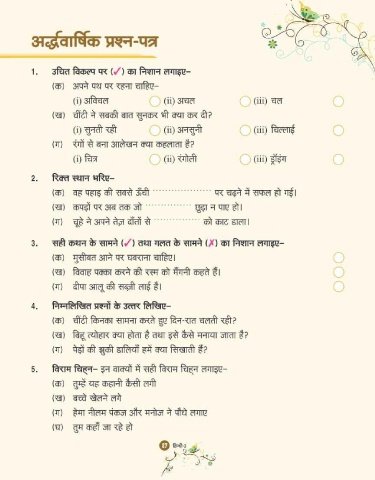 अर्द्धवार्षिक प्रश्न-पत्र
1. उचित विकल्प पर (✓) का निशान लगाइए–
(क) अपने पथ पर रहना चाहिए-
(i) अविचल (ii) अचल (iii) चल
(ख) चींटी ने सबकी बात सुनकर भी क्या कर दी?
(i) सुनती रही (ii) अनसुनी (iii) चिल्लाई
(ग) रंगों से बना आलेखन क्या कहलाता है?
(i) चित्र (ii) रंगोली (iii) ड्रॉइंग
2. रिक्त स्थान भरिए–
(क) वह पहाड़ की सबसे ऊँची ................ पर चढ़ने में सफल हो गई।
(ख) कपड़ों पर अब तक जो ................ छुड़ा न पाए हो।
(ग) चूहे ने अपने तेज़ दाँतों से ................ को काट डाला।
3. सही कथन के सामने (✓) तथा गलत के सामने (✗) का निशान लगाइए–
(क) मुसीबत आने पर घबराना चाहिए।
(ख) विवाह पक्का करने की रस्म को मँगनी कहते हैं।
(ग) दीपा आलू की सब्ज़ी लाई है।
4. निम्नलिखित प्रश्नों के उत्तर लिखिए–
(क) चींटी किनका सामना करते हुए दिन-रात चलती रही?
(ख) बिहू त्योहार क्या होता है तथा इसे कैसे मनाया जाता है?
(ग) पेड़ों की झुकी डालियाँ हमें क्या सिखाती हैं?
5. विराम चिह्न– इन वाक्यों में सही विराम चिह्न लगाइए-
(क) तुम्हें यह कहानी कैसी लगी
(ख) बच्चे खेलने लगे
(ग) हेमा नीलम पंकज और मनोज ने पौधे लगाए
(घ) तुम कहाँ जा रहे हो
87 हिन्दी-3